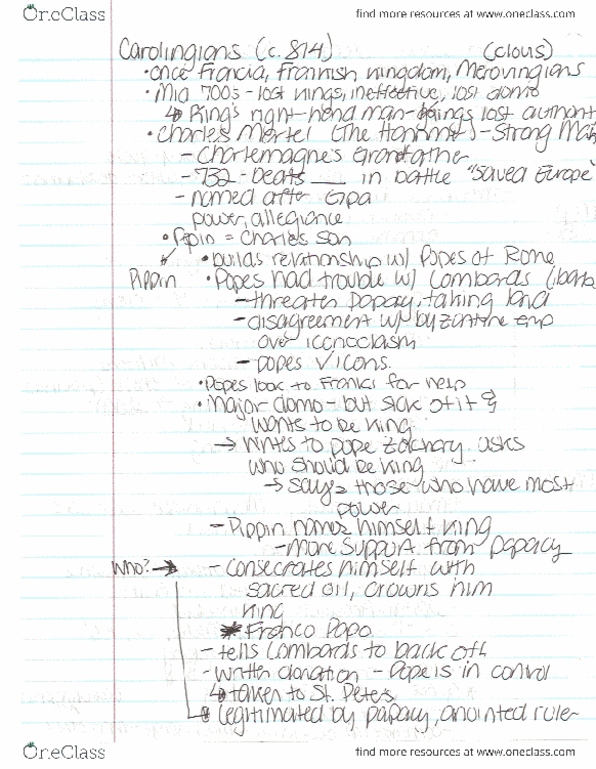 OneClass
find more resources at www.oneclass.com
Carolingians (c. 814) (clous)
• once Francia, Frankish kingdom, Merovingians
• Mid 700s - last kings, ineffective, lost
↳ King's right-hand man - kings lost authori
• Charles Martel (The Hammer) - Strong Man
- Charlemagne's Grandfather
- 732 - beats ___ in battle "Saved Europe"
- named after Gpa
power, allegiance
• Pepin = Charles son
• builds relationship w/ Popes of Rome
Pippin • Popes had trouble w/ Lombards (barb
- threaten papacy, taking land
- disagreement w/ byzantine emp
over iconoclasm
- popes v icons.
• Popes look to Franks for help
• Major-domo - but sick of it &
wants to be king
→ Writes to pope Zachary asks
who should be king
→ says those who have most
power
- Pippin names himself king
- More support from papacy
Who? → - consecrates himself with
sacred oil, crowns him
king
* Franco Papo
- tells Lombards to back off
- written donation - Pope is in control
↳ taken to St. Peters
legitimated by papacy, anointed ruler
OneClass
find more resources at www.oneclass.com